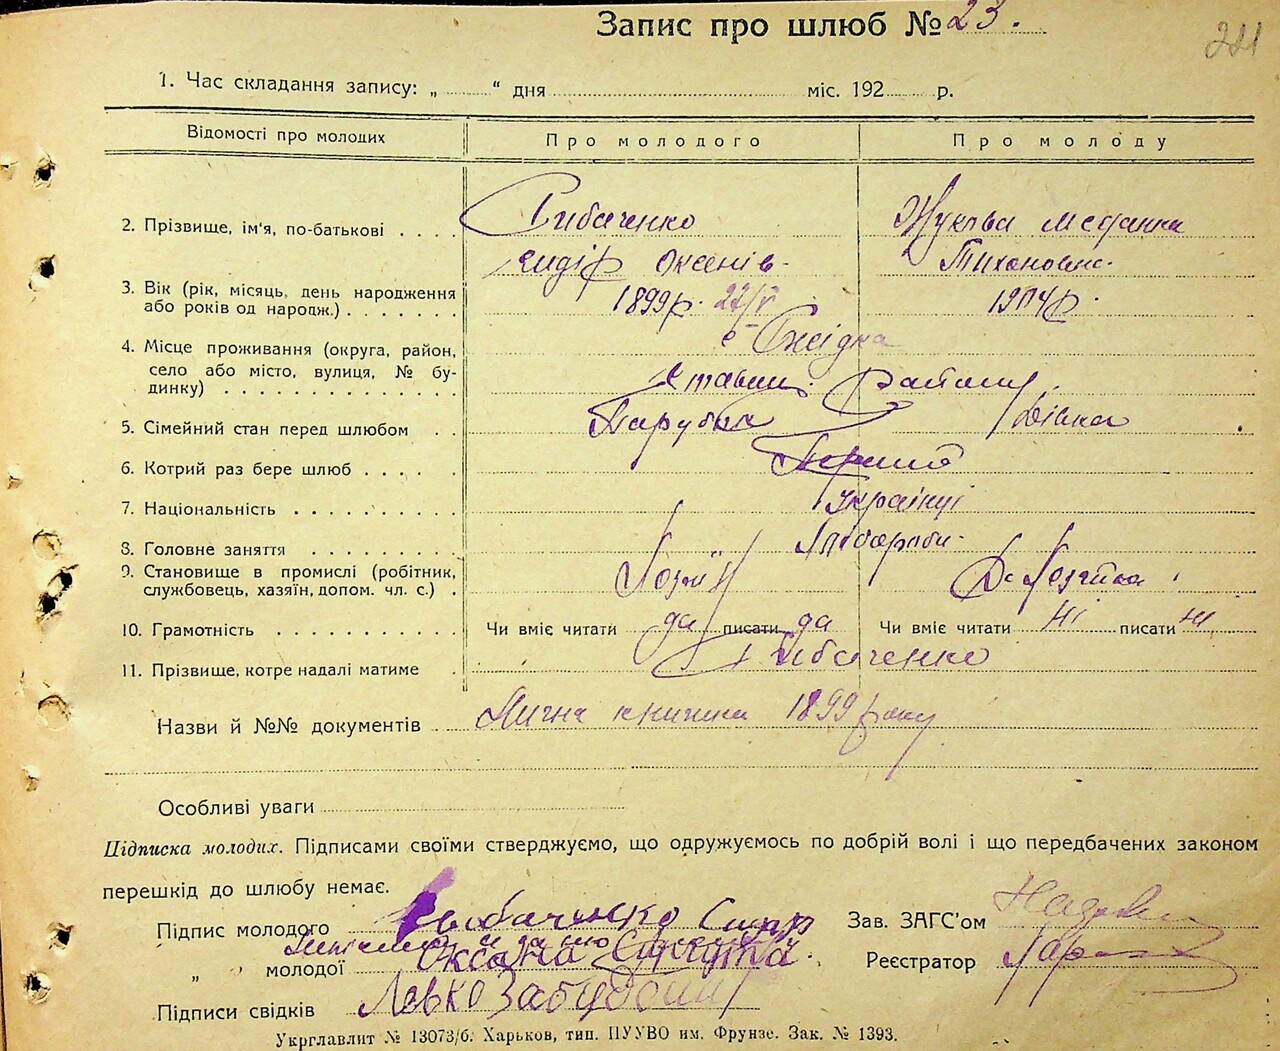 Запис про шлюб № 23.
221
1. Час складання запису: „ “ дня міс. 192 р.
Відомості про молодих Про молодого Про молоду
2. Прізвище, ім'я, по-батькові Рибаченко Жукова
Сидір Тихоновна
3. Вік (рік, місяць, день народження 1899р. 22/V 1904р.
або років од народж.)
4. Місце проживання (округа, район,
село або місто, вулиця, № бу-
динку) Ставищ. Району
5. Сімейний стан перед шлюбом Парубок Дівка
6. Котрий раз бере шлюб Перший
7. Національність Українці
8. Головне заняття Хлібороби
9. Становище в промислі (робітник,
службовець, хазяїн, допом. чл. с.)
10. Грамотність Чи вміє читати да писати да Чи вміє читати ні писати ні
11. Прізвище, котре надалі матиме Рибаченко
Назви й №№ документів книжка 1899 року
Особливі уваги
Підписка молодих. Підписами своїми стверджуємо, що одружуємось по добрій волі і що передбачених законом
перешкід до шлюбу немає.
Підпис молодого Рыбаченко Зав. ЗАГС'ом
„ молодої Оксана Реєстратор
Підписи свідків Левко
Укрглавлит № 13073/б. Харьков, тип. ПУУВО им. Фрунзе. Зак. № 1393.